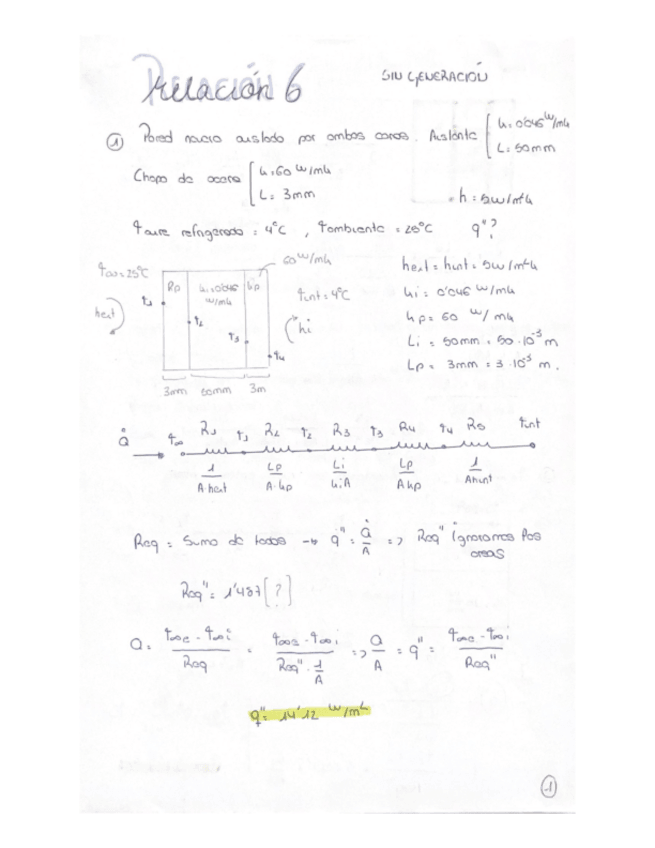 Relación 6
SIN GENERACIÓN
① Pared nevera aislada por ambas caras. Aislante { k = 0'046 W/mk
L = 50mm
Chapa de acero [ k = 60 W/mk
L = 3mm
h = 5 W/m²k
Taire refrigerado = 4°C, Tambiente = 25°C q''?
T∞ = 25°C
60 W/mk
hext
T1
kp
ki = 0'046 W/mk
kp
T2
T3
T4
Tint = 4°C
hi
3mm 50mm 3m
hext = hint = 5 W/m²k
ki = 0'046 W/mk
kp = 60 W/mk
Li = 50mm = 50·10⁻³ m
Lp = 3mm = 3·10⁻³ m.
Q̇ T∞ R1 T1 R2 T2 R3 T3 R4 T4 R5 Tint
1/A·hext Lp/A·kp Li/ki·A Lp/A·kp 1/A·hint
Req = Suma de todas → q̇'' = Q̇/A => Req'' ignoramos las areas
Req'' = 1'487 [?]
Q = T∞e - T∞i / Req = T∞e - T∞i / Req''·1/A => Q/A = q'' = T∞e - T∞i / Req''
q'' = 14'12 W/m²
1